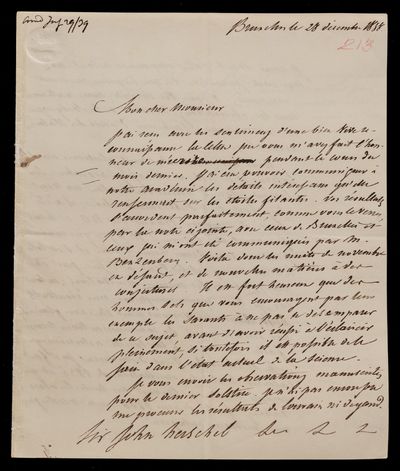 Bruxelles le 28 décembre 1838.
213
Mon cher Monsieur
J'ai reçu avec les sentimens d'une bien vive re-
connaissance la lettre que vous m'avez fait l'hon-
neur de m'écrire pendant le cours du
mois dernier. J'ai cru pouvoir communiquer à
notre académie les détails intéressans qu'elle
renfermait sur les étoiles filantes. Vos résultats
s'accordent parfaitement, comme vous le verrez
par la note ci jointe, avec ceux de Bruxelles et
ceux qui m'ont été communiqués par M.
Benzenberg. Voilà donc les nuits de novembre
en défaut, et de nouvelles matières à des
conjectures. Il est fort heureux que des
hommes tels que vous encouragent par leur
exemple les savants à ne pas se désemparer
de ce sujet, avant d'avoir réussi à l'éclaircir
pleinement, si toutefois il est possible de le
faire dans l'état actuel de la science.
Je vous envoie les observations manuscrites
pour le dernier solstice. je n'ai pas encore pu
me procurer les résultats de Louvain ni de gand.
Sir John Herschel